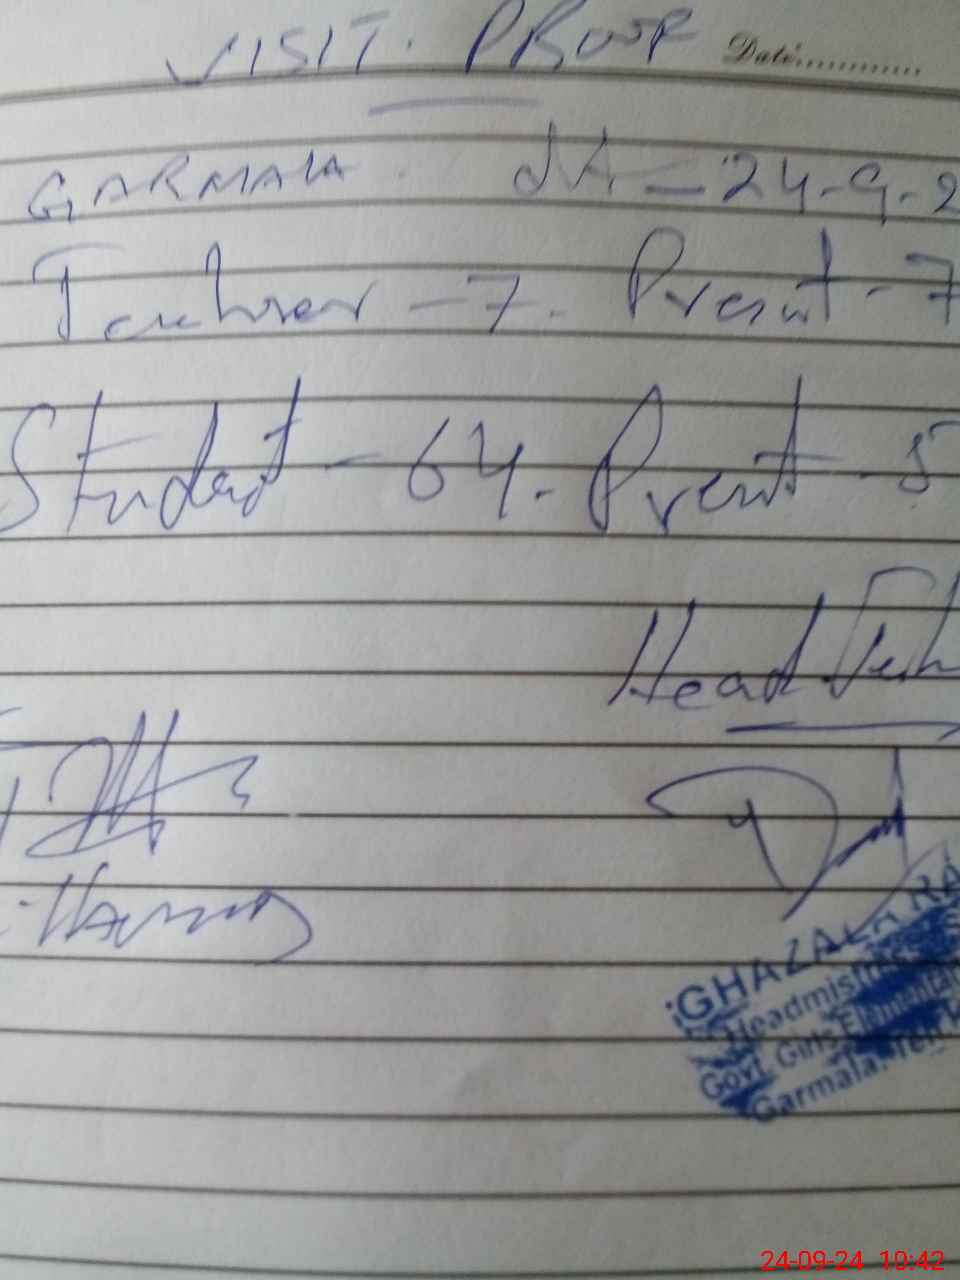 VISIT. PROOF Date............
GARMALA. dt - 24-9-2
Teacher - 7. Present - 7
Student - 64. Present - 5
Head Teh
GHAZALA RA
Headmistress
Govt. Girls Elementar
Garmala.
24-09-24 10:42